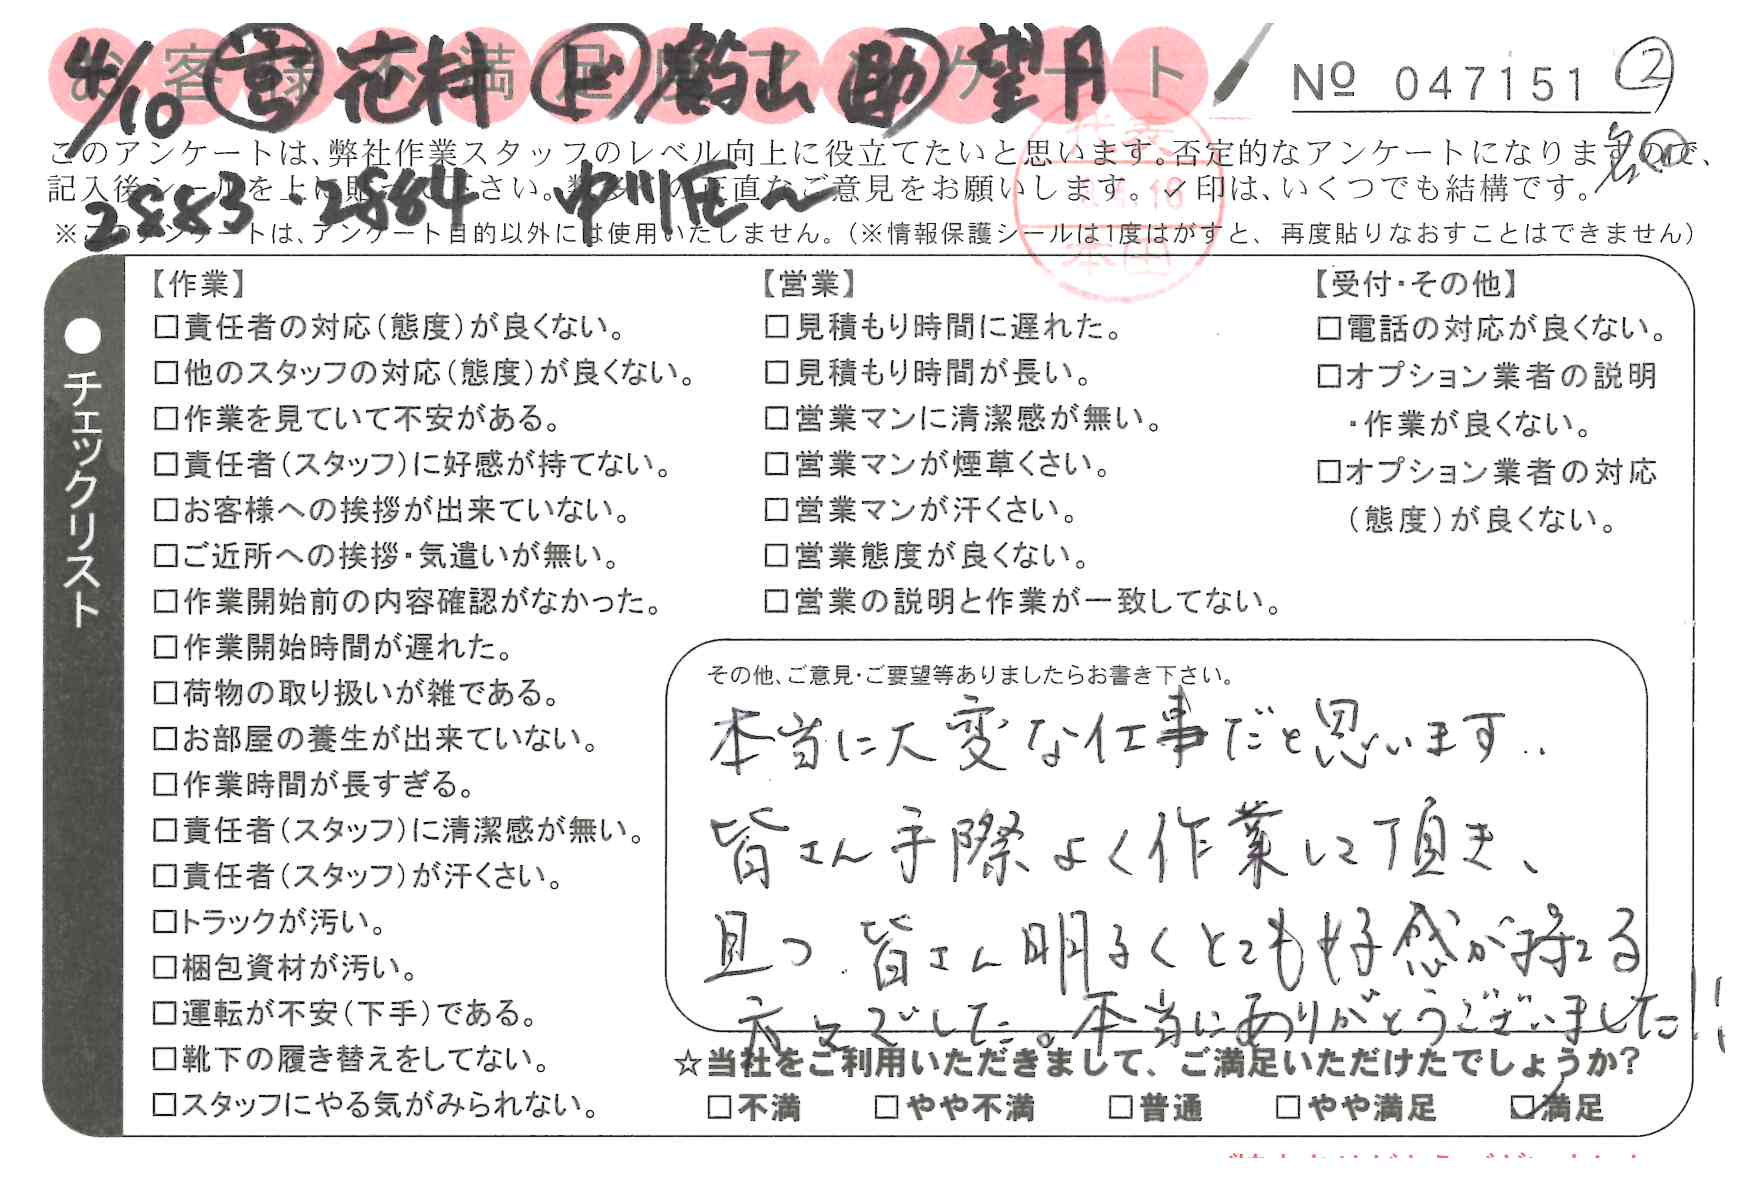 お客様不満足度アンケート
4/10 花村 山 助 望月
№ 047151 ②
このアンケートは、弊社作業スタッフのレベル向上に役立てたいと思います。否定的なアンケートになりますので、
記入後シールを上に貼って下さい。数多くの正直なご意見をお願いします。✓印は、いくつでも結構です。
2883・2884 中川区〜
※このアンケートは、アンケート目的以外には使用いたしません。(※情報保護シールは1度はがすと、再度貼りなおすことはできません)
●チェックリスト
【作業】
□責任者の対応(態度)が良くない。
□他のスタッフの対応(態度)が良くない。
□作業を見ていて不安がある。
□責任者(スタッフ)に好感が持てない。
□お客様への挨拶が出来ていない。
□ご近所への挨拶・気遣いが無い。
□作業開始前の内容確認がなかった。
□作業開始時間が遅れた。
□荷物の取り扱いが雑である。
□お部屋の養生が出来ていない。
□作業時間が長すぎる。
□責任者(スタッフ)に清潔感が無い。
□責任者(スタッフ)が汗くさい。
□トラックが汚い。
□梱包資材が汚い。
□運転が不安(下手)である。
□靴下の履き替えをしてない。
□スタッフにやる気がみられない。
【営業】
□見積もり時間に遅れた。
□見積もり時間が長い。
□営業マンに清潔感が無い。
□営業マンが煙草くさい。
□営業マンが汗くさい。
□営業態度が良くない。
□営業の説明と作業が一致してない。
【受付・その他】
□電話の対応が良くない。
□オプション業者の説明
・作業が良くない。
□オプション業者の対応
(態度)が良くない。
その他、ご意見・ご要望等ありましたらお書き下さい。
本当に大変な仕事だと思います..
皆さん手際よく作業して頂き、
且つ、皆さん明るくとても好感が持てる
方々でした。本当にありがとうございました!!
☆当社をご利用いただきまして、ご満足いただけたでしょうか?
□不満 □やや不満 □普通 □やや満足 ☑満足